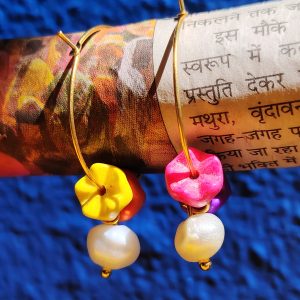 निकलन तक ज
इस मौके
स्वरूप में क
प्रस्तुति देकर
मथुरा, वृंदावन
जगह-जगह प
जा रहा
भक्ति में